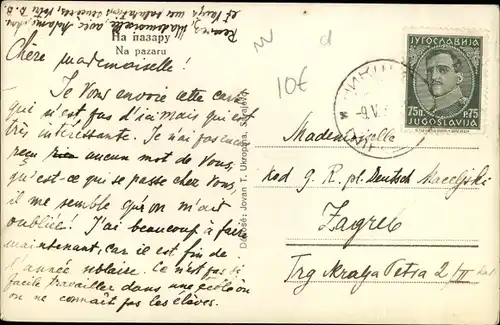 Recevez, Mademoiselle, avec Madame, chère
et Vangs mes salutations sincères, votre R. B.
На пазару
Na pazaru
10€
d
ЈУГОСЛАВИЈА
75п. P.75
JUGOSLAVIJA
-9.V.
Chère mademoiselle!
Je Vous envoie cette carte
qui n'est pas d'ici mais qui est
très intéressante. Je n'ai pas encore
reçu rien aucun mot de Vous,
qu'est-ce qui se passe chez Vous,
il me semble qu'on m'ait
oubliée! J'ai beaucoup à faire
maintenant, car il est fin de
l'année scolaire. Ce n'est pas si
facile travailler dans une école où
on ne connaît pas les élèves.
Déposé: Jovan T. Ukropina, Sarajevo
Mademoiselle
Kod g. R. pl. Deutsch Maceljski
Zagreb
Trg Kralja Petra 2/II kat